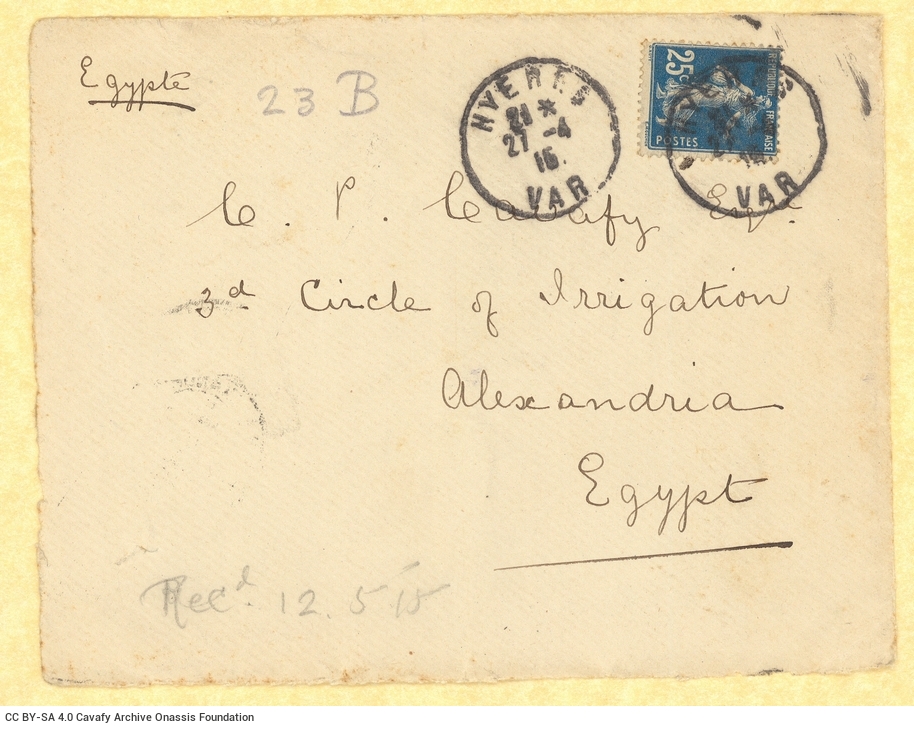 Egypte
23 B
HYERES
21 *
27 -4
15.
VAR
25c
POSTES
REPUBLIQUE FRANCAISE
HYERES
VAR
C. P. Cavafy Esqre.
3d Circle of Irrigation
Alexandria
Egypt
Recd. 12.5 15
CC BY-SA 4.0 Cavafy Archive Onassis Foundation